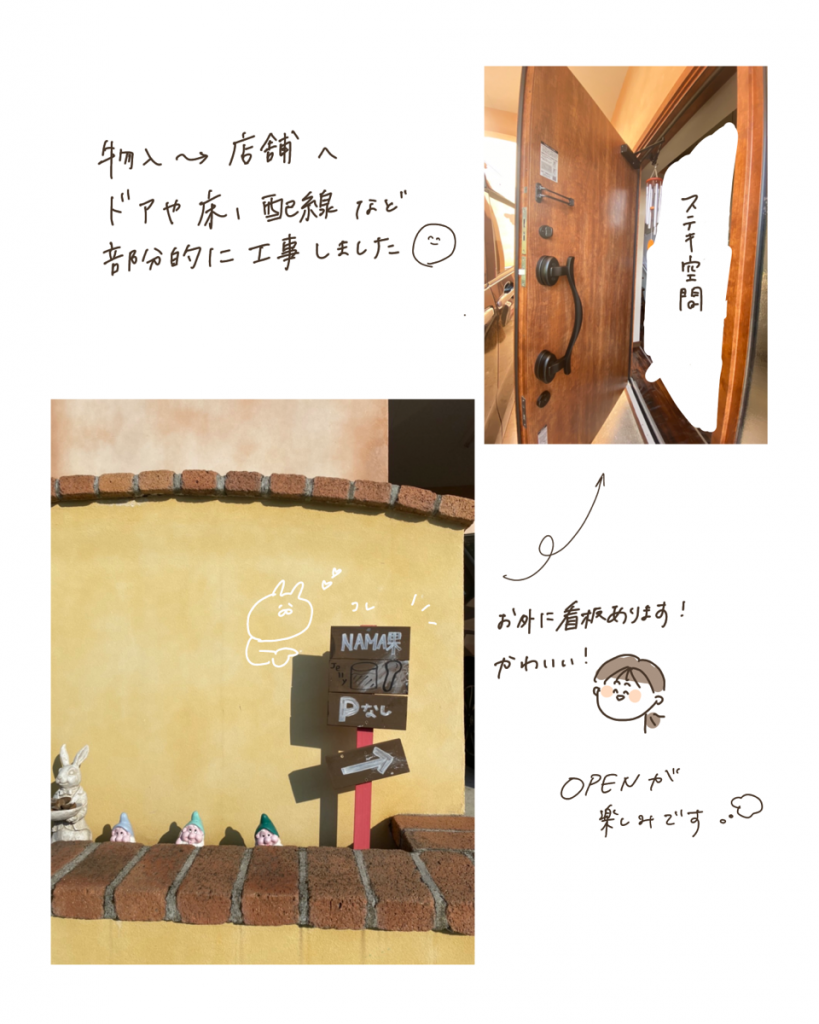 物入〜→店舗へ
ドアや床、配線など
部分的に工事しました
ステキ空間
コレ
NAMA果
Pなし
お外に看板あります!
かわいい!
OPENが
楽しみです